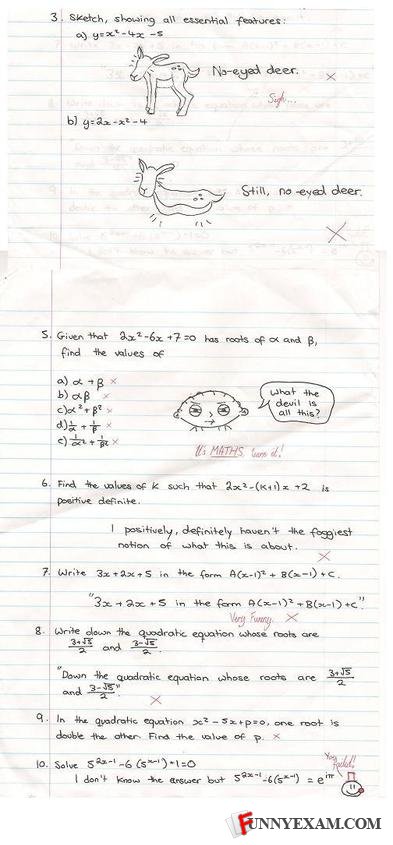 3. Sketch, showing all essential features:
a) y=x²-4x-5
No-eyed deer.
Sigh...
b) y=2x-x²-4
Still, no-eyed deer.
5. Given that 2x²-6x+7=0 has roots of α and β,
find the values of
a) α+β
b) αβ
c) α²+β²
d) 1/α + 1/β
e) 1/α² + 1/β²
What the
devil is
all this?
It's MATHS
6. Find the values of K such that 2x²-(K+1)x+2 is
positive definite.
I positively, definitely haven't the foggiest
notion of what this is about.
7. Write 3x+2x+5 in the form A(x-1)²+B(x-1)+C.
"3x+2x+5 in the form A(x-1)²+B(x-1)+C".
Very Funny.
8. Write down the quadratic equation whose roots are
3+√5/2 and 3-√5/2.
"Down the quadratic equation whose roots are 3+√5/2
and 3-√5/2."
9. In the quadratic equation x²-5x+p=0, one root is
double the other. Find the value of p.
10. Solve 5²ˣ⁻¹-6(5ˣ⁻¹)+1=0
I don't know the answer but 5²ˣ⁻¹-6(5ˣ⁻¹) = e^iπ
You
Failed!
FUNNYEXAM.COM